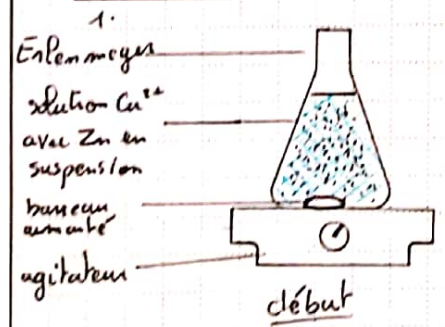 1.
Erlenmeyer
solution Cu²⁺
avec Zn en
suspension
barreau
aimanté
agitateur
début